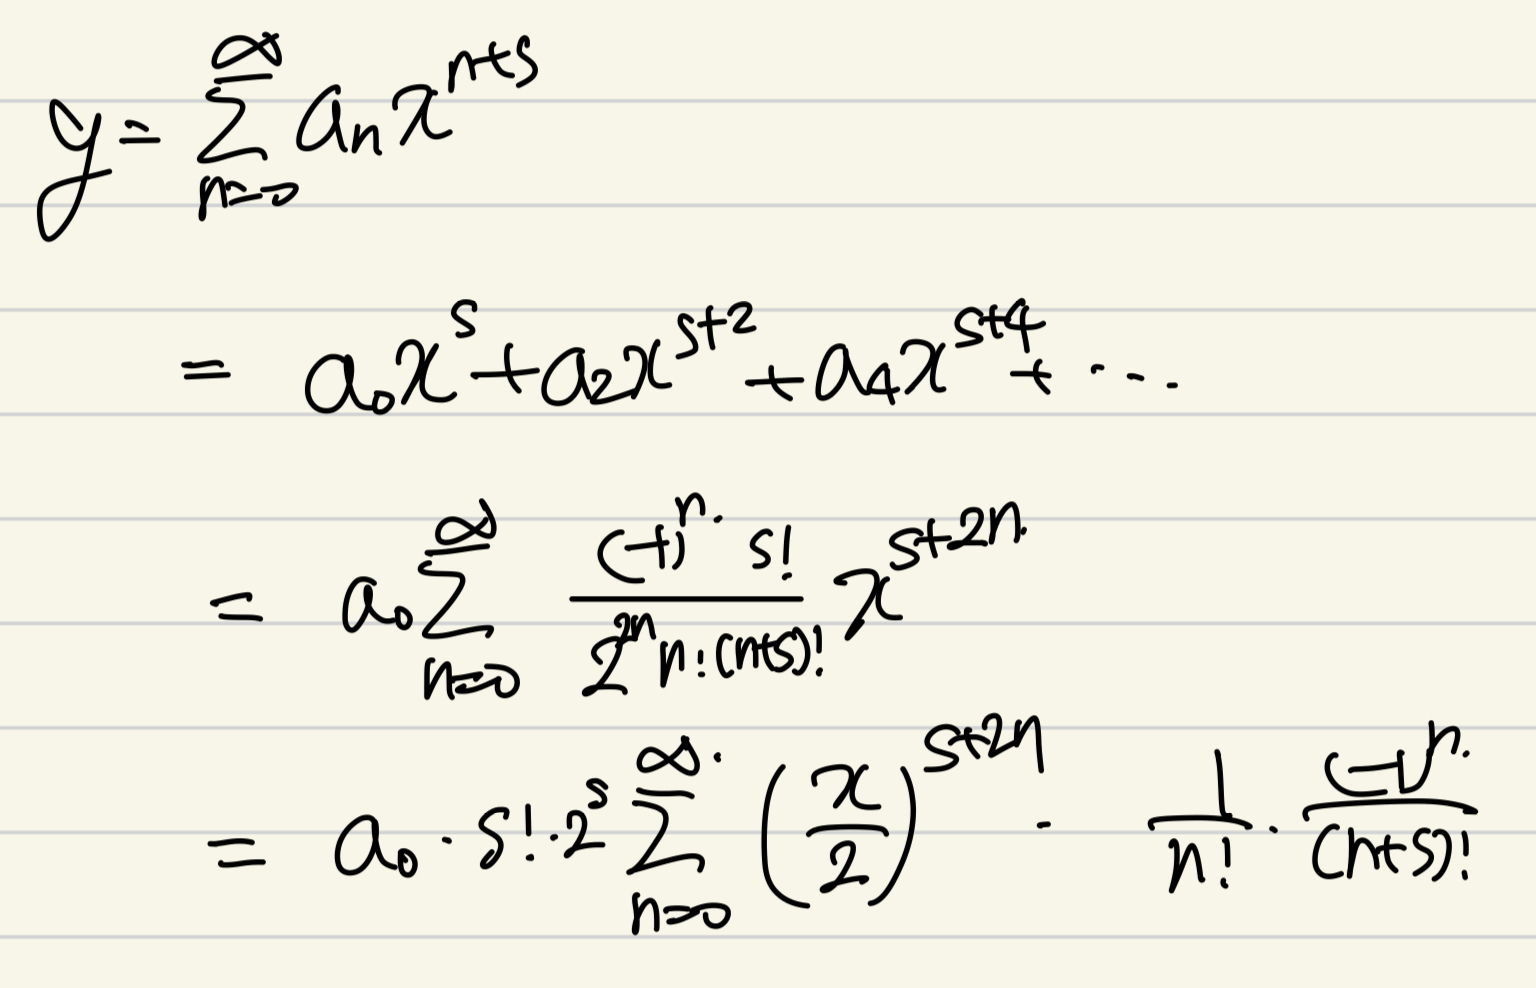 y = \sum_{n=0}^{\infty} a_n x^{n+s}
= a_0 x^s + a_2 x^{s+2} + a_4 x^{s+4} + \cdots
= a_0 \sum_{n=0}^{\infty} \frac{(-1)^n \cdot s!}{2^{2n} n! (n+s)!} x^{s+2n}
= a_0 \cdot s! \cdot 2^s \sum_{n=0}^{\infty} \left(\frac{x}{2}\right)^{s+2n} \cdot \frac{1}{n!} \cdot \frac{(-1)^n}{(n+s)!}